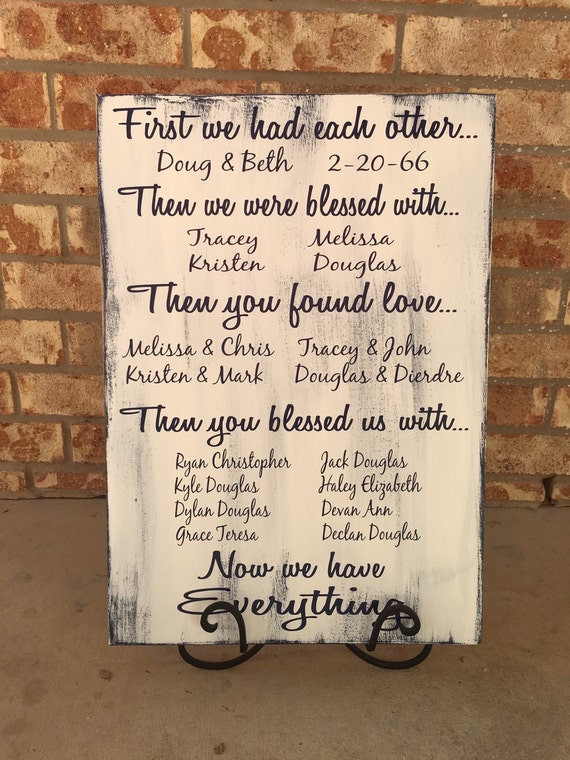 First we had each other...
Doug & Beth 2-20-66
Then we were blessed with...
Tracey Melissa
Kristen Douglas
Then you found love...
Melissa & Chris Tracey & John
Kristen & Mark Douglas & Dierdre
Then you blessed us with...
Ryan Christopher Jack Douglas
Kyle Douglas Haley Elizabeth
Dylan Douglas Devan Ann
Grace Teresa Declan Douglas
Now we have
Everything